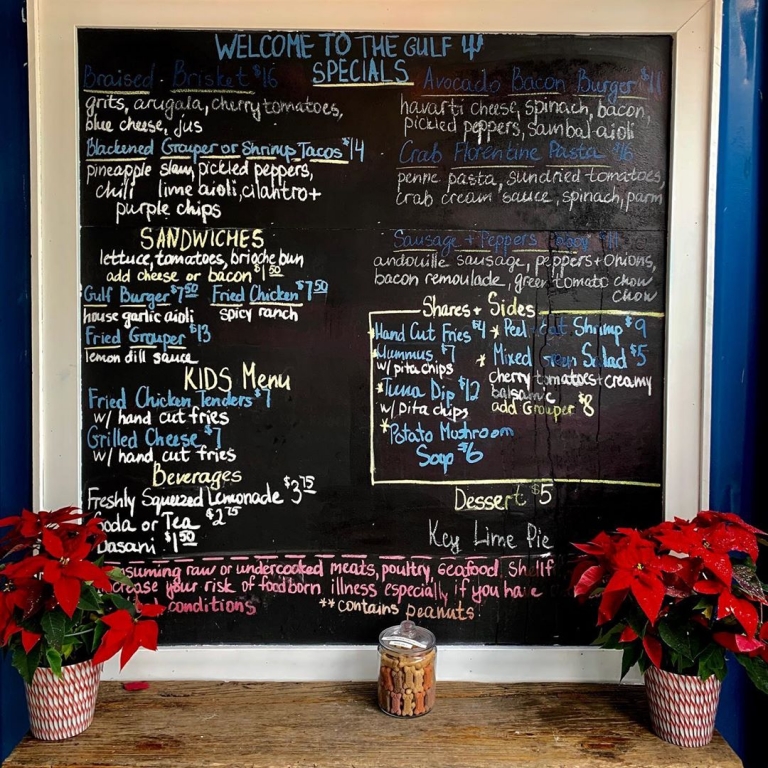 WELCOME TO THE GULF
SPECIALS
Braised Brisket $16
grits, arugala, cherry tomatoes,
blue cheese, jus
Blackened Grouper or Shrimp Tacos $14
pineapple slaw, pickled peppers,
chili lime aioli, cilantro +
purple chips
Avocado Bacon Burger $11
havarti cheese, spinach, bacon,
pickled peppers, sambal aioli
Crab Florentine Pasta
penne pasta, sundried tomatoes,
crab cream sauce, spinach, parm
Sausage + Peppers
andouille sausage, peppers + onions,
bacon remoulade, green tomato chow
chow
SANDWICHES
lettuce, tomatoes, brioche bun
add cheese or bacon $1.50
Gulf Burger $7.50 Fried Chicken $7.50
house garlic aioli spicy ranch
Fried Grouper $13
lemon dill sauce
KIDS Menu
Fried Chicken Tenders $7
w/ hand cut fries
Grilled Cheese $7
w/ hand cut fries
Beverages
Freshly Squeezed Lemonade $3.75
Soda or Tea $2.75
Dasani $1.50
Shares + Sides
Hand Cut Fries $4
*Hummus $7
w/ pita chips
*Tuna Dip $12
w/ pita chips
*Potato Mushroom
Soup $6
*Peel Eat Shrimp $9
*Mixed Green Salad $5
cherry tomatoes + creamy
balsamic
add Grouper $8
Dessert $5
Key Lime Pie
raw or undercooked meats, poultry, seafood, shellf
your risk of foodborn illness especially if you have
conditions **contains peanuts